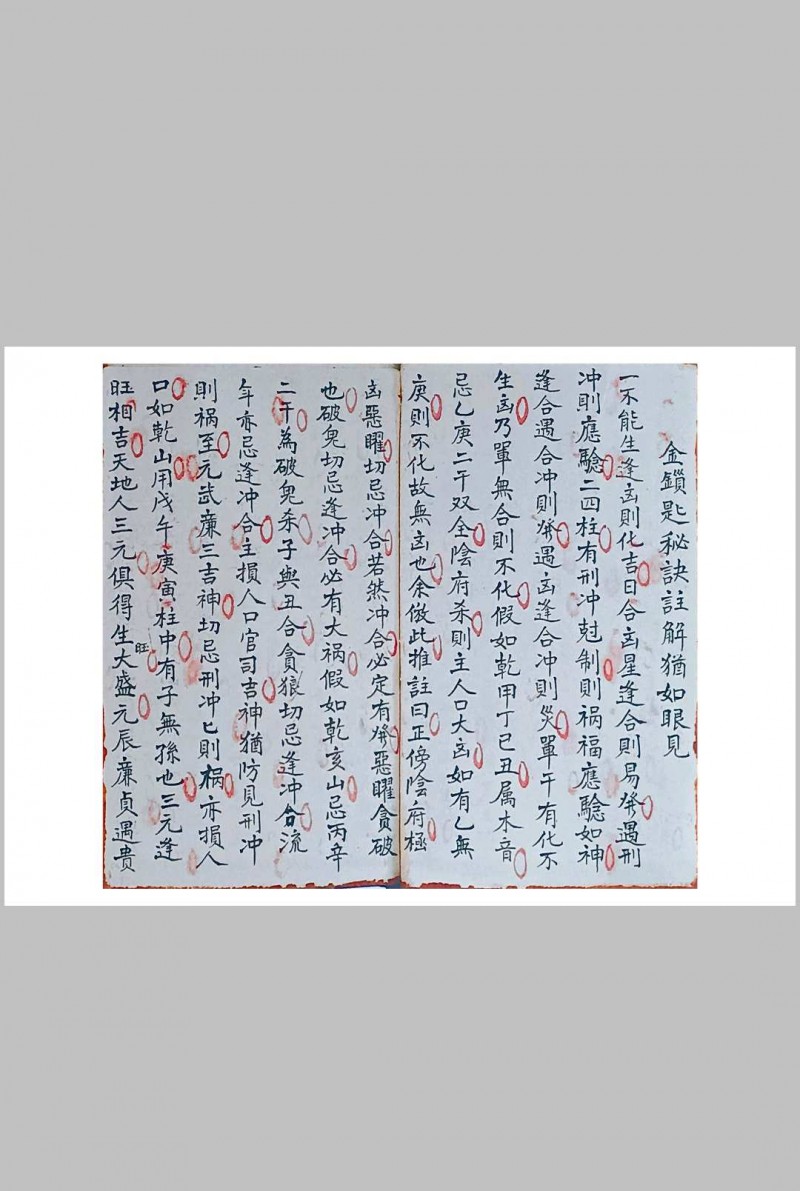 金鎖匙秘訣註解猶如眼見
一不能生逢凶則化吉日合凶星逢合則易發遇刑
冲則應驗二四柱有刑冲尅制則祸福應驗如神
逢合遇合冲則發遇凶逢合冲則災單干有化不
生凶乃單無合則不化假如乾甲丁巳丑属木音
忌乙庚二干双全陰府杀則主人口大凶如有乙無
庚則不化故無凶也余倣此推註曰正傍陰府極
凶惡曜切忌冲合若然冲合必定有發惡曜貪破
也破鬼切忌逢冲合必有大祸假如乾亥山忌丙辛
二干為破鬼杀子與丑合貪狼切忌逢冲合流
年亦忌逢冲合主損人口官司吉神猶防見刑冲
則祸至元武廉三吉神切忌刑冲匕則祸亦損人
口如乾山用戊午庚寅柱中有子無孫也三元逢
旺相吉天地人三元俱得生旺大盛元辰廉貞遇貴